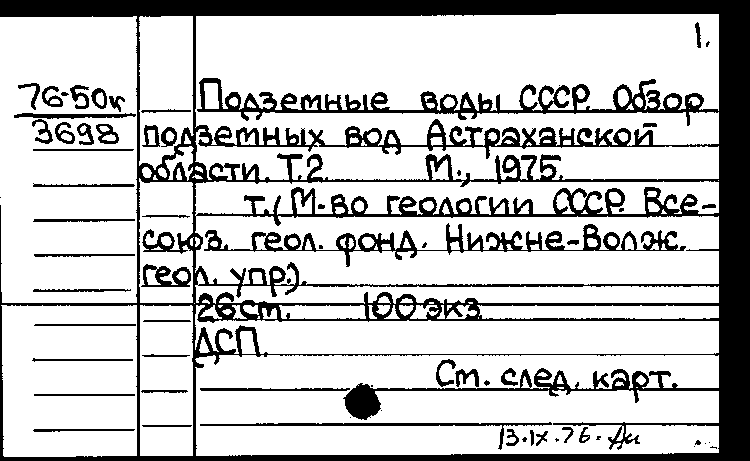 1.
76-50к
3698
Подземные воды СССР. Обзор
подземных вод Астраханской
области. Т.2. М., 1975.
т. (М-во геологии СССР. Все-
союз. геол. фонд. Нижне-Волж.
геол. упр.).
26 ст. 100 экз
ДСП.
Ст. след. карт.
13.IX.76.